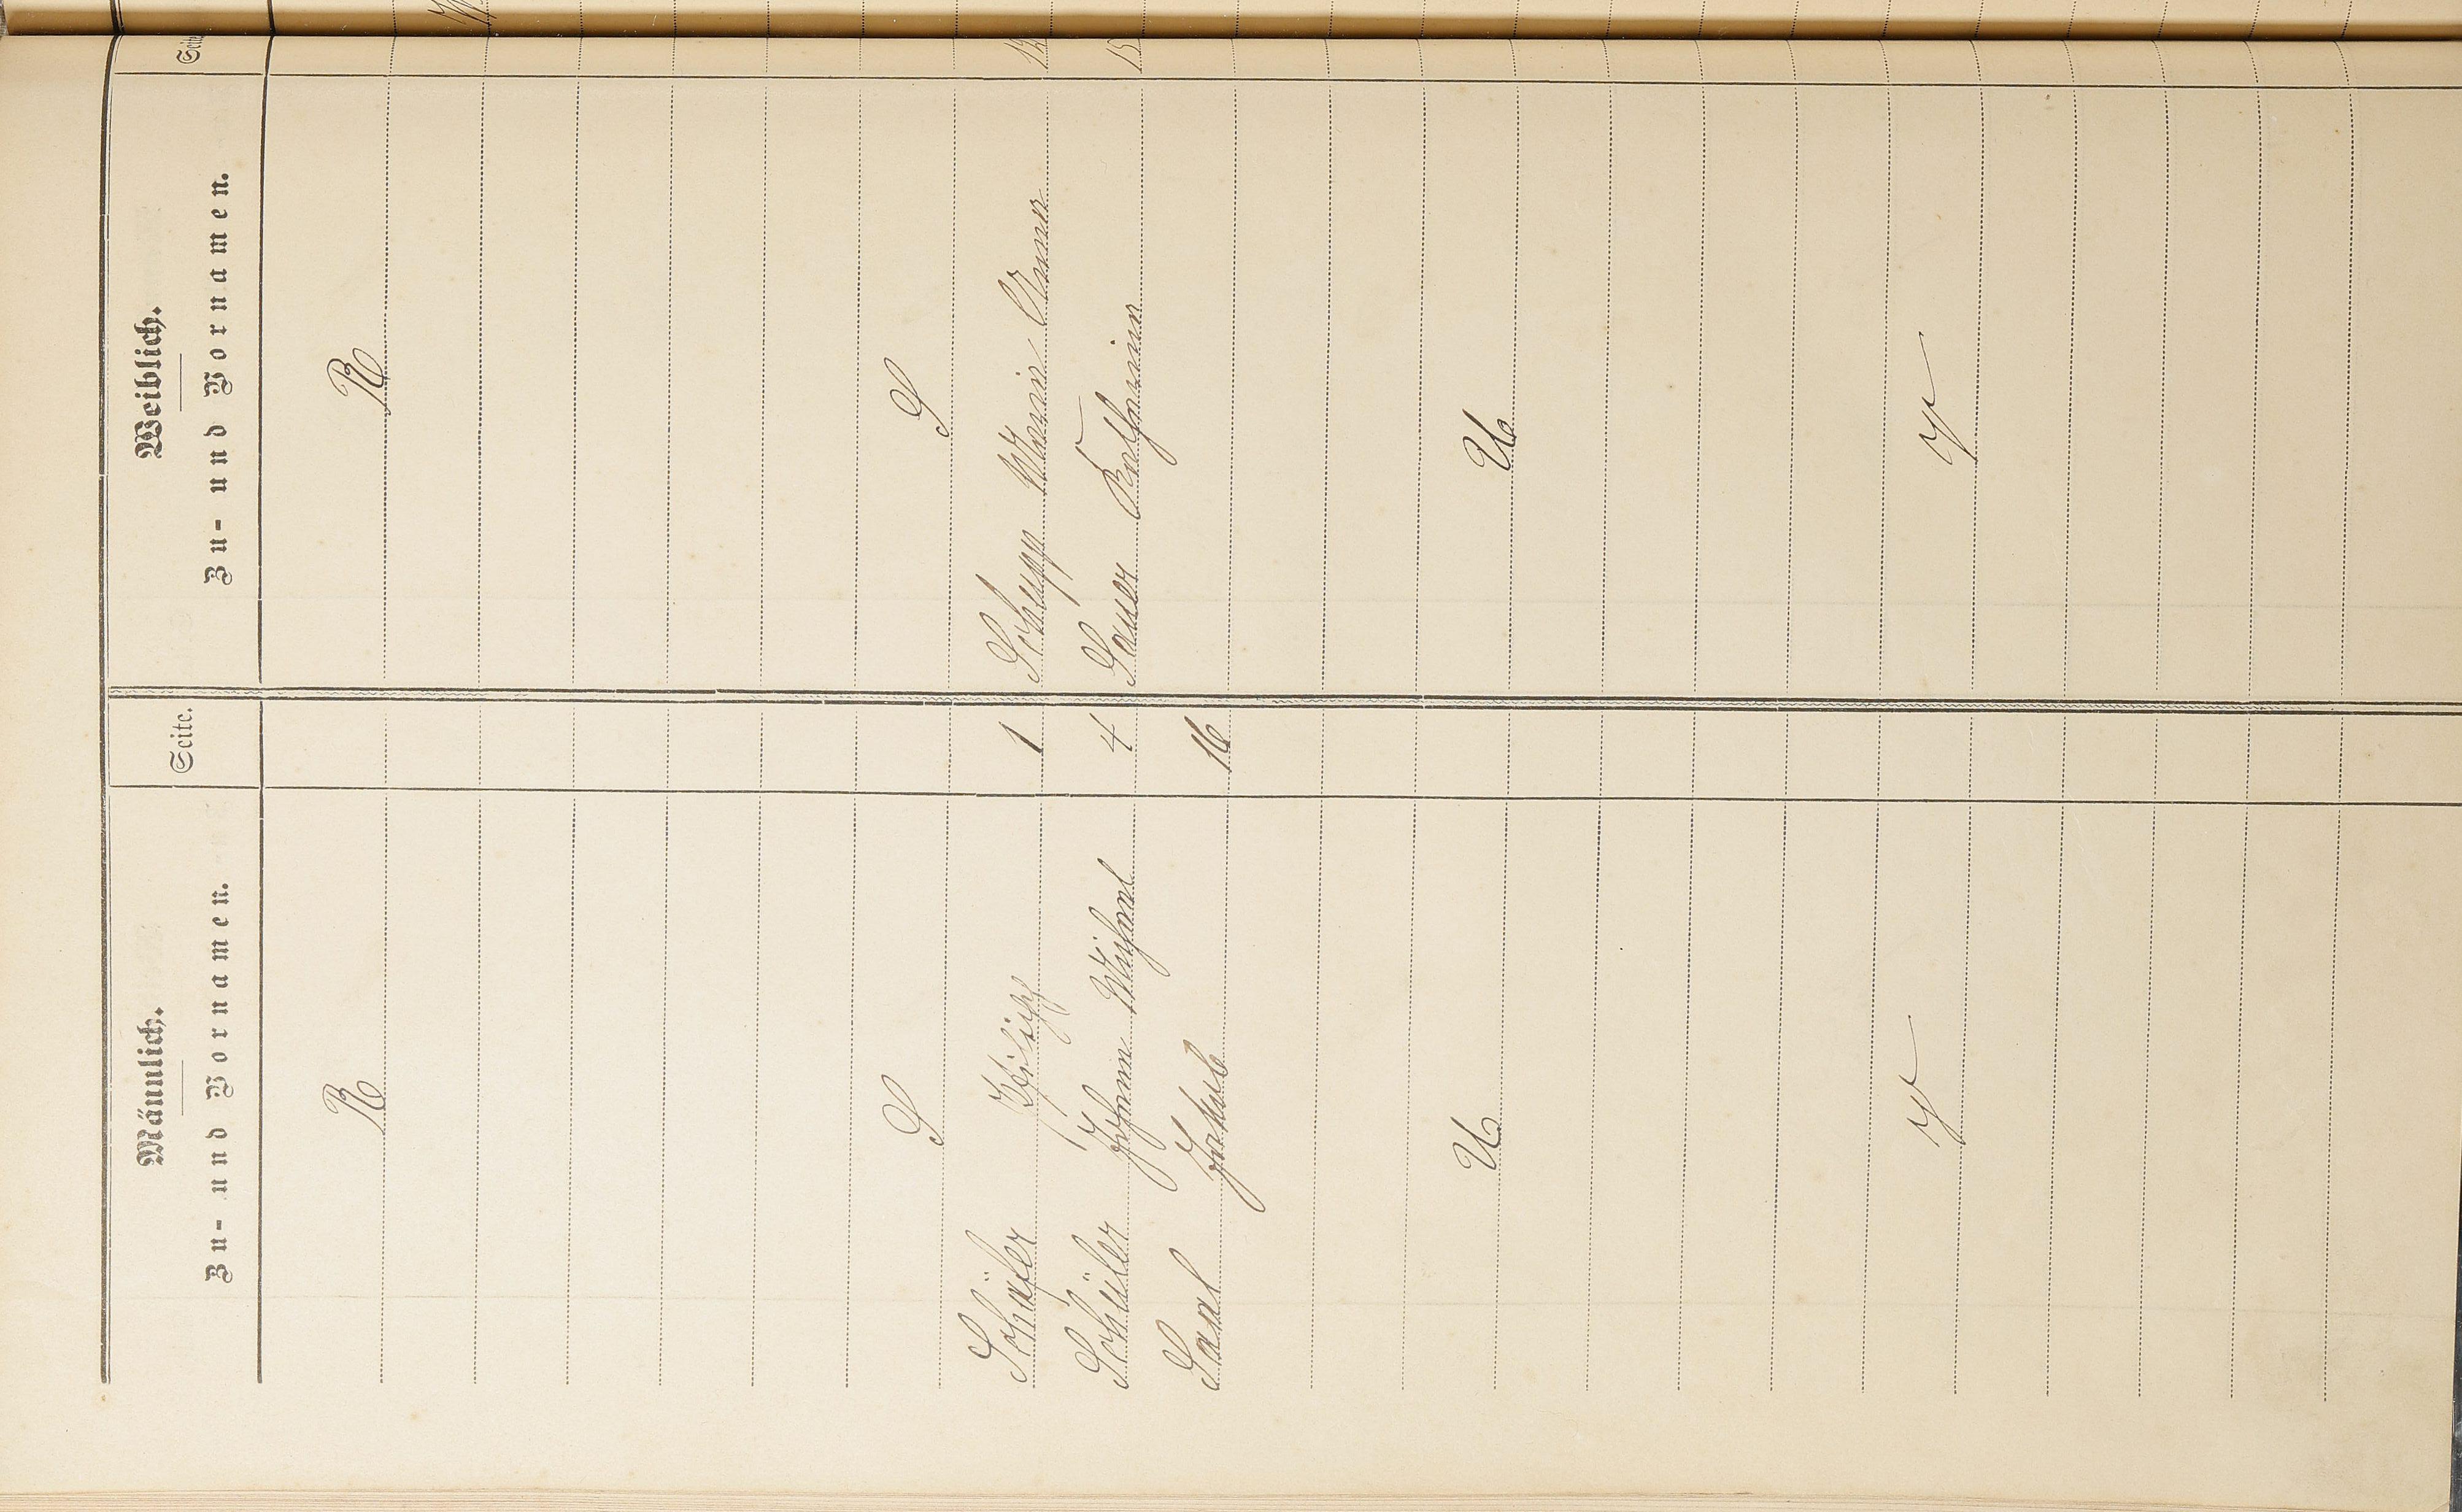 Männlich.
Zu- und Vornamen.
Seite.
Weiblich.
Zu- und Vornamen.
Seite
R
R
S
S
Schäfer Philipp 1
Schupp Maria Anna
Schüler Johann Michael 4
Sauer Katharina 15
Saal Jakob 16
U
U
Y
Y